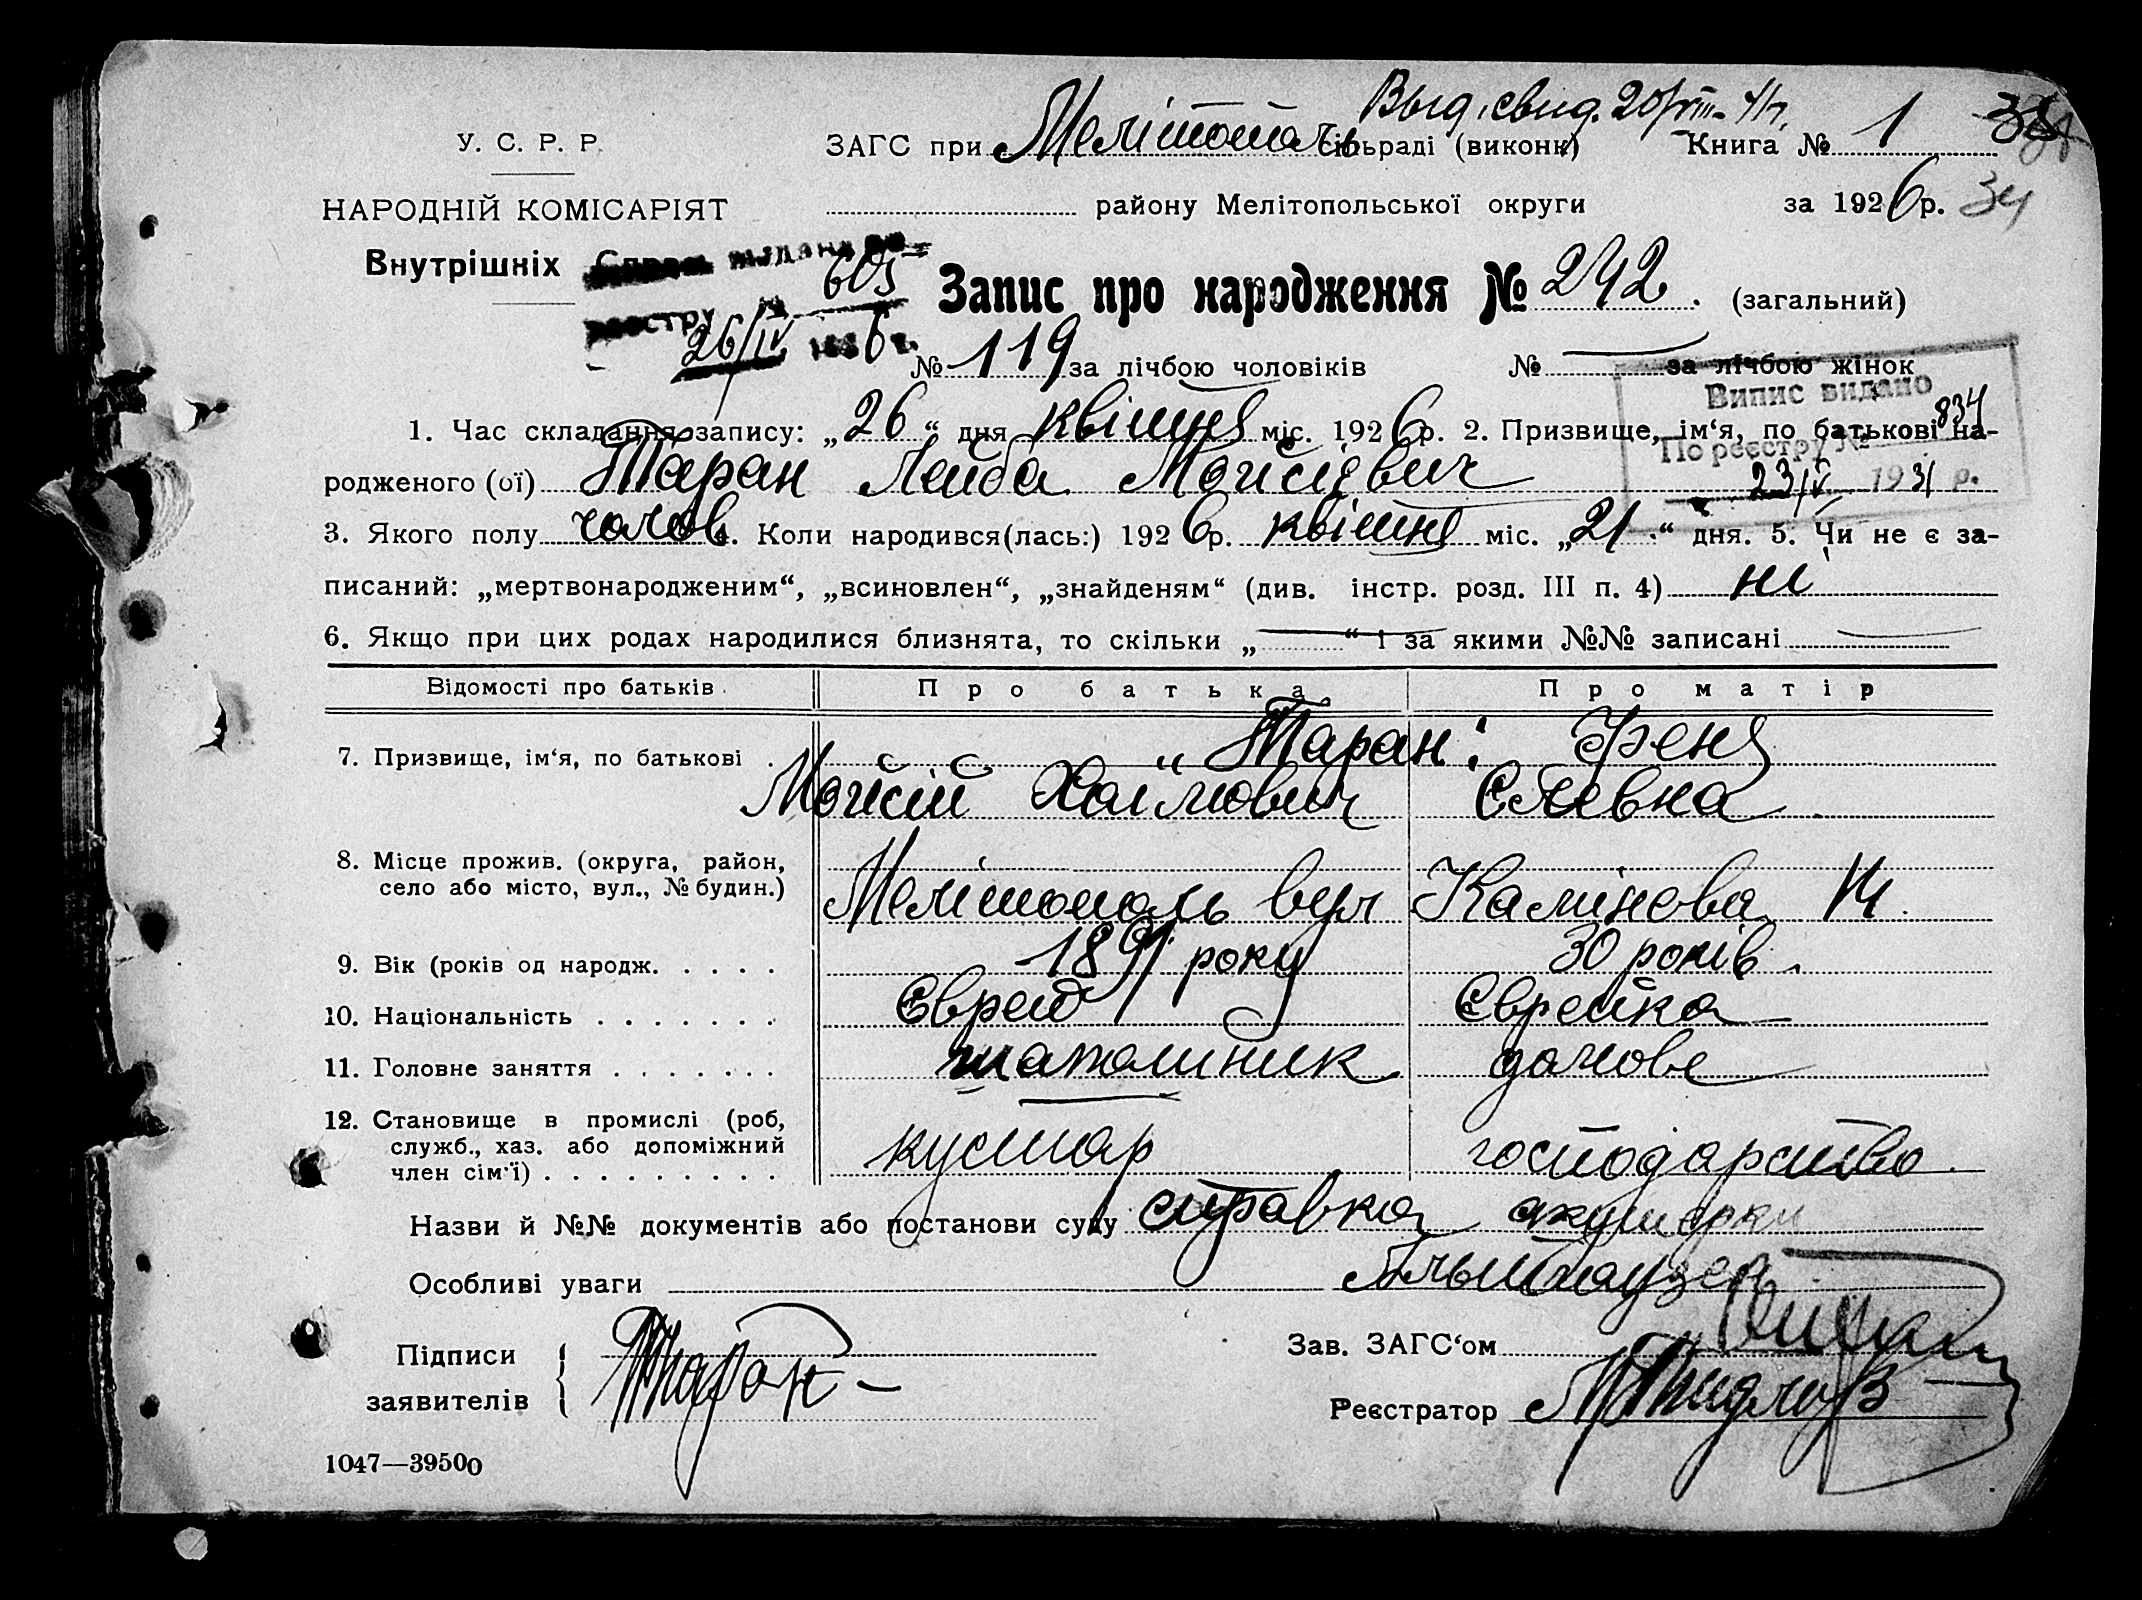 Выд. свид. 20/VIII-41г.
У. С. Р. Р.
ЗАГС при Мелітополь сільраді (виконк) Книга № 1
НАРОДНІЙ КОМІСАРІЯТ
районy Мелітопольської округи за 1926 р. 34
Внутрішніх Справ
видана по
реєстру № 605
26/IV 1926 р.
Запис про народження № 242. (загальний)
№ 119 за лічбою чоловіків № — за лічбою жінок
Випис видано
По реєстру № 834
23/IV 1931 р.
1. Час складання запису: „26“ дня квітня міс. 1926 р. 2. Призвище, ім‘я, по батькові на-
родженого (ої) Таран Лейба Мойсієвич
3. Якого полу чолов. 4. Коли народився(лась:) 1926 р. квітня міс. „21“ дня. 5. Чи не є за-
писаний: „мертвонародженим“, „всиновлен“, „знайденям“ (див. інстр. розд. III п. 4) ні
6. Якщо при цих родах народилися близнята, то скільки „—“ і за якими №№ записані —
Відомості про батьків Про батька Про матір
7. Призвище, ім‘я, по батькові . Таран: Феня
Мойсій Хаїмович Єлевна
8. Місце прожив. (округа, район,
село або місто, вул., № будин.) Мелітополь вул Калінова 14.
9. Вік (років од народж. . . . . 1891 року 30 років.
10. Національність . . . . . . . Єврей Єврейка
11. Головне заняття . . . . . . . домове
12. Становище в промислі (роб,
служб., хаз. або допоміжний
член сім‘ї) . . . . . . . . . кустар господарство
Назви й №№ документів або постанови суду справка акушерки
Особливі уваги
Підписи
заявителів Таран
Зав. ЗАГС‘ом
Реєстратор
1047—39500